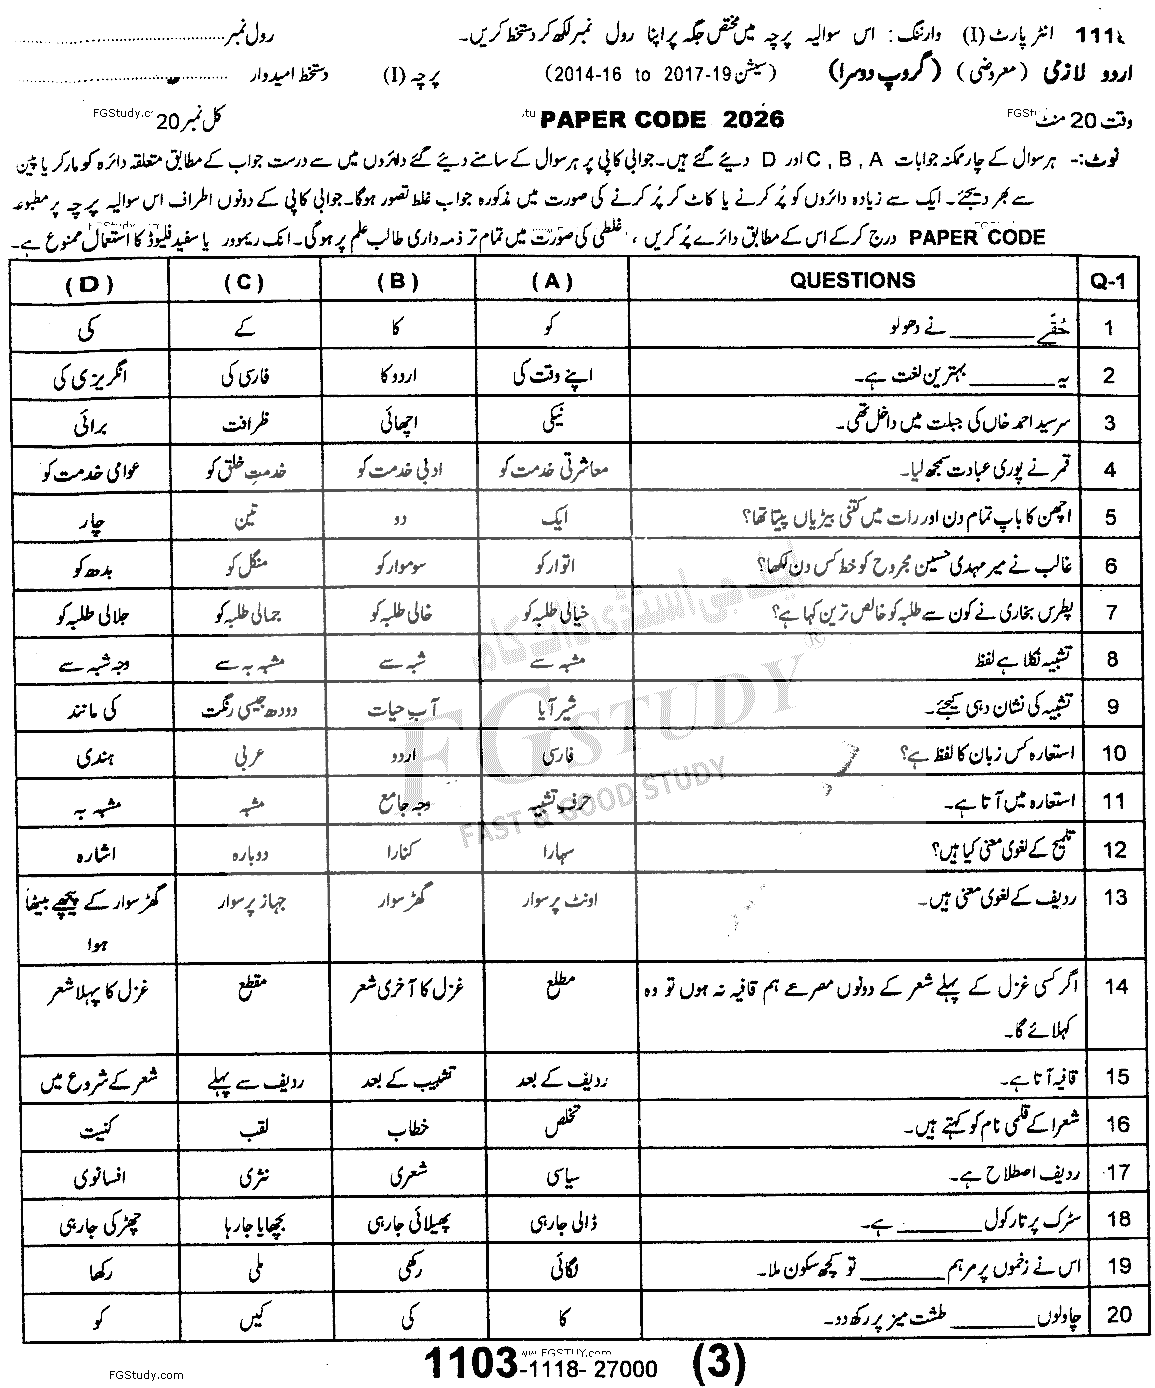 1118 انٹر پارٹ (I) وارننگ: اس سوالیہ پرچہ میں مختص جگہ پر اپنا رول نمبر لکھ کر دستخط کریں۔ رول نمبر
اردو لازمی (معروضی) (گروپ دوسرا) (سیشن 19-2017 to 2014-16) پرچہ (I) دستخط امیدوار
وقت 20 منٹ PAPER CODE 2026 کل نمبر 20
نوٹ:- ہر سوال کے چار ممکنہ جوابات C , B , A اور D دیئے گئے ہیں۔ جوابی کاپی پر ہر سوال کے سامنے دیئے گئے دائروں میں سے درست جواب کے مطابق متعلقہ دائرہ کو مارکر یا پین
سے بھر دیجئے۔ ایک سے زیادہ دائروں کو پُر کرنے یا کاٹ کر پُر کرنے کی صورت میں مذکورہ جواب غلط تصور ہوگا۔ جوابی کاپی کے دونوں اطراف اس سوالیہ پرچہ پر مطبوعہ
PAPER CODE درج کرکے اس کے مطابق دائرے پُر کریں، غلطی کی صورت میں تمام تر ذمہ داری طالب علم پر ہوگی۔ انک ریموور یا سفید فلیوڈ کا استعمال ممنوع ہے۔
Q-1 QUESTIONS (A) (B) (C) (D)
1 حُقّے ________ نے دھولو کو کا کے کی
2 یہ ________ بہترین لغت ہے۔ اپنے وقت کی اردو کا فارسی کی انگریزی کی
3 سرسید احمد خاں کی جبلت میں داخل تھی۔ نیکی اچھائی ظرافت برائی
4 قمر نے پوری عبادت سمجھ لیا۔ معاشرتی خدمت کو ادبی خدمت کو خدمتِ خلق کو عوامی خدمت کو
5 اچھن کا باپ تمام دن اور رات میں کتنی بیڑیاں پیتا تھا؟ ایک دو تین چار
6 غالب نے میر مہدی حسین مجروح کو خط کس دن لکھا؟ اتوار کو سوموار کو منگل کو بدھ کو
7 پطرس بخاری نے کون سے طلبہ کو خالص ترین کہا ہے؟ خیالی طلبہ کو خالی طلبہ کو جمالی طلبہ کو جلالی طلبہ کو
8 تشبیہ نکلا ہے لفظ مشبہ سے شبہ سے مشبہ بہ سے وجہ شبہ سے
9 تشبیہ کی نشان دہی کیجئے۔ شیر آیا آبِ حیات دودھ جیسی رنگت کی مانند
10 استعارہ کس زبان کا لفظ ہے؟ فارسی اردو عربی ہندی
11 استعارہ میں آتا ہے۔ حرفِ تشبیہ وجہ جامع مشبہ مشبہ بہ
12 تلمیح کے لغوی معنی کیا ہیں؟ سہارا کنارا دوبارہ اشارہ
13 ردیف کے لغوی معنی ہیں۔ اونٹ پر سوار گھڑ سوار جہاز پر سوار گھڑ سوار کے پیچھے بیٹھا
ہوا
14 اگر کسی غزل کے پہلے شعر کے دونوں مصرعے ہم قافیہ نہ ہوں تو وہ مطلع غزل کا آخری شعر مقطع غزل کا پہلا شعر
کہلائے گا۔
15 قافیہ آتا ہے۔ ردیف کے بعد تشبیب کے بعد ردیف سے پہلے شعر کے شروع میں
16 شعرا کے قلمی نام کو کہتے ہیں۔ تخلص خطاب لقب کنیت
17 ردیف اصطلاح ہے۔ سیاسی شعری نثری افسانوی
18 سڑک پر تارکول ________ ہے۔ ڈالی جارہی پھیلائی جارہی بچھایا جارہا چھڑکی جارہی
19 اس نے زخموں پر مرہم ________ تو کچھ سکون ملا۔ لگائی رکھی ملی رکھا
20 چاولوں ________ طشت میز پر رکھ دو۔ کا کی کیں کو
1103-1118- 27000 (3)
FGStudy.com
FGSTUDY
FAST & GOOD STUDY